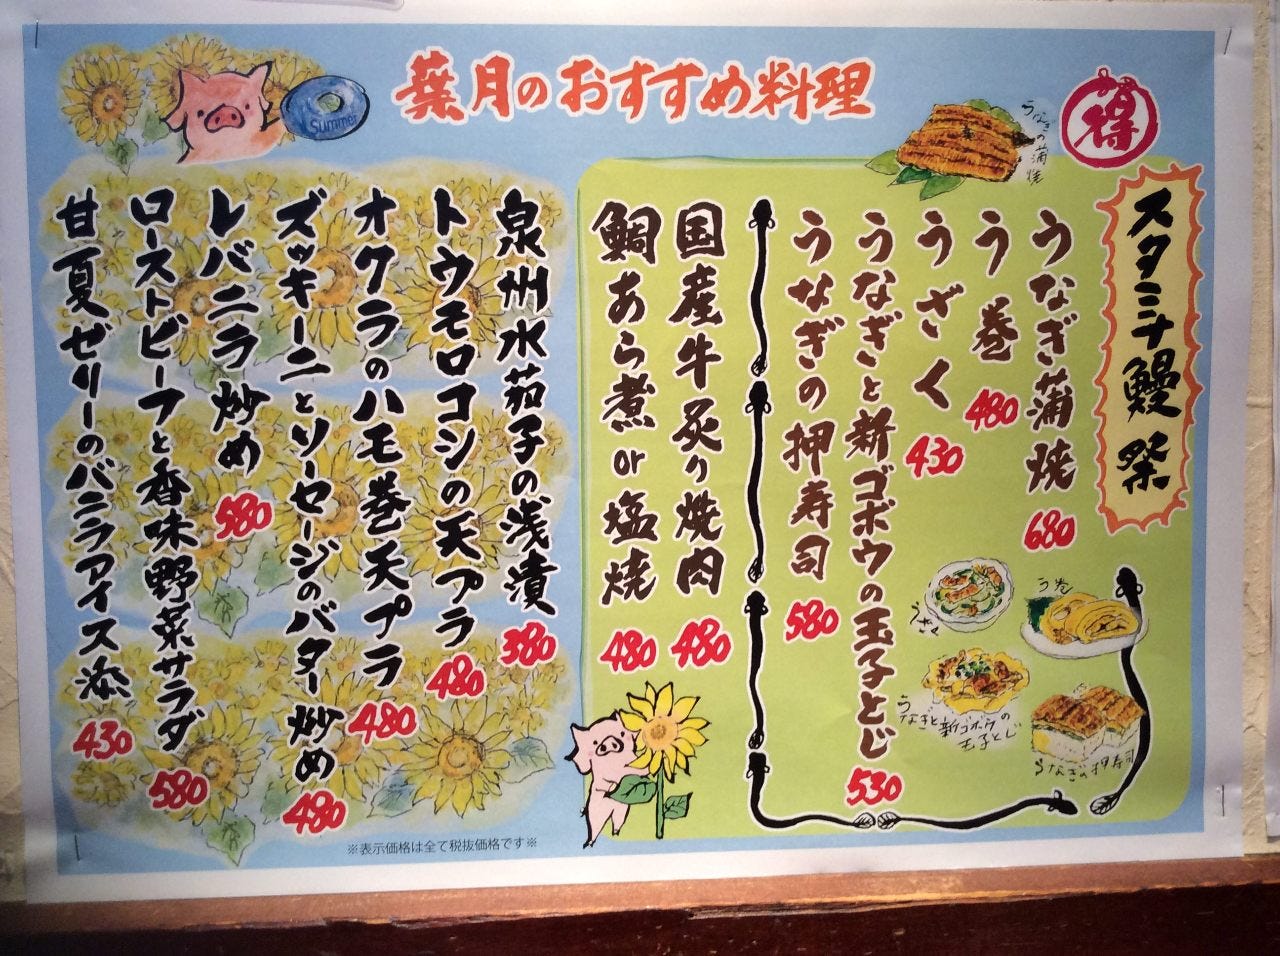 葉月のおすすめ料理
Summer
得
うなぎの蒲焼
スタミナ鰻祭
うなぎ蒲焼 680
う巻 480
うざく 430
うなぎと新ゴボウの玉子とじ 530
うなぎの押寿司 580
う巻
うざく
うなぎと新ゴボウの
玉子とじ
うなぎの押寿司
国産牛炙り焼肉 480
鯛あら煮or塩焼 480
泉州水茄子の浅漬 380
トウモロコシの天プラ 480
オクラのハモ巻天プラ 480
ズッキーニとソーセージのバター炒め 480
レバニラ炒め 580
ローストビーフと香味野菜サラダ 580
甘夏ゼリーのバニラアイス添 430
※表示価格は全て税抜価格です※